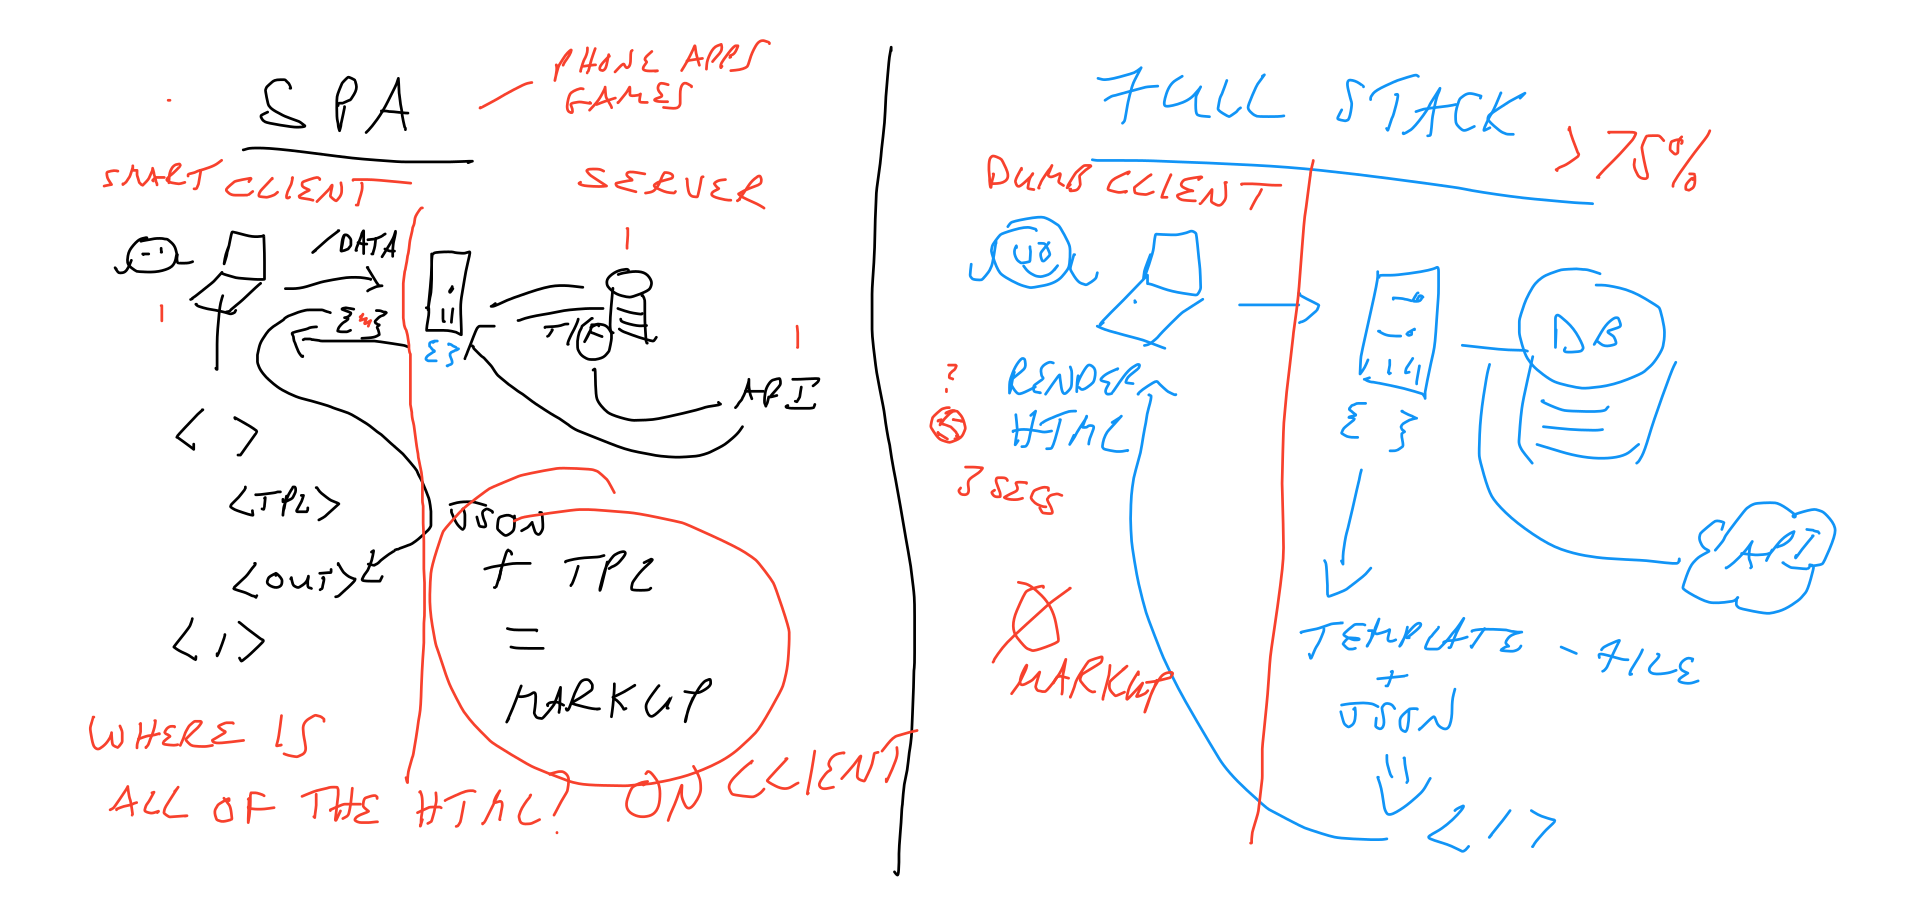 SPA
PHONE APPS
GAMES
SMART CLIENT
SERVER
/DATA
{ }
{ }
API
< >
<TPL>
<OUT>
</>
JSON
+ TPL
=
MARKUP
WHERE IS
ALL OF THE HTML? ON CLIENT
FULL STACK
> 75%
DUMB CLIENT
DB
RENDER
HTML
?
3 SECS
{ }
API
MARKUP
TEMPLATE - FILE
+
JSON
</>